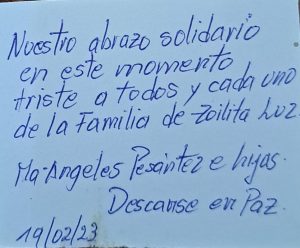 Nuestro abrazo solidario
en este momento
triste a todos y cada uno
de la Familia de Zoilita Luz.
Ma-Angeles Pesántez e hijas.
Descanse en Paz.
19/02/23